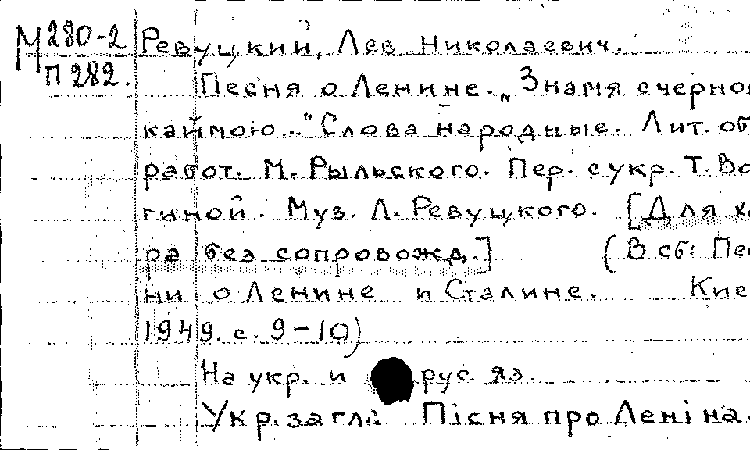 М 280-2 Ревуцкий, Лев Николаевич.
П 282. Песня о Ленине. „Знамя с черной
каймою..." Слова народные. Лит. об
работ. М. Рыльского. Пер. с укр. Т. Во
гиной. Муз. Л. Ревуцкого. [Для хо
ра без сопровожд.] (В сб: Пес
ни о Ленине и Сталине. Кие
1949. с. 9-10)
На укр. и рус яз.
Укр. загл: Пісня про Леніна.